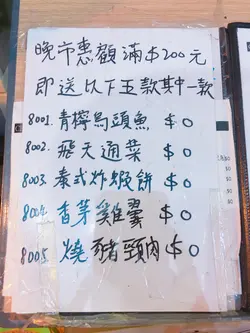 晚市惠顧滿$200元
即送以下五款其中一款
8001. 青檸烏頭魚 $0
8002. 飛天通菜 $0
8003 泰式炸蝦餅 $0
8004 香茅雞翼 $0
8005 燒豬頸肉 $0